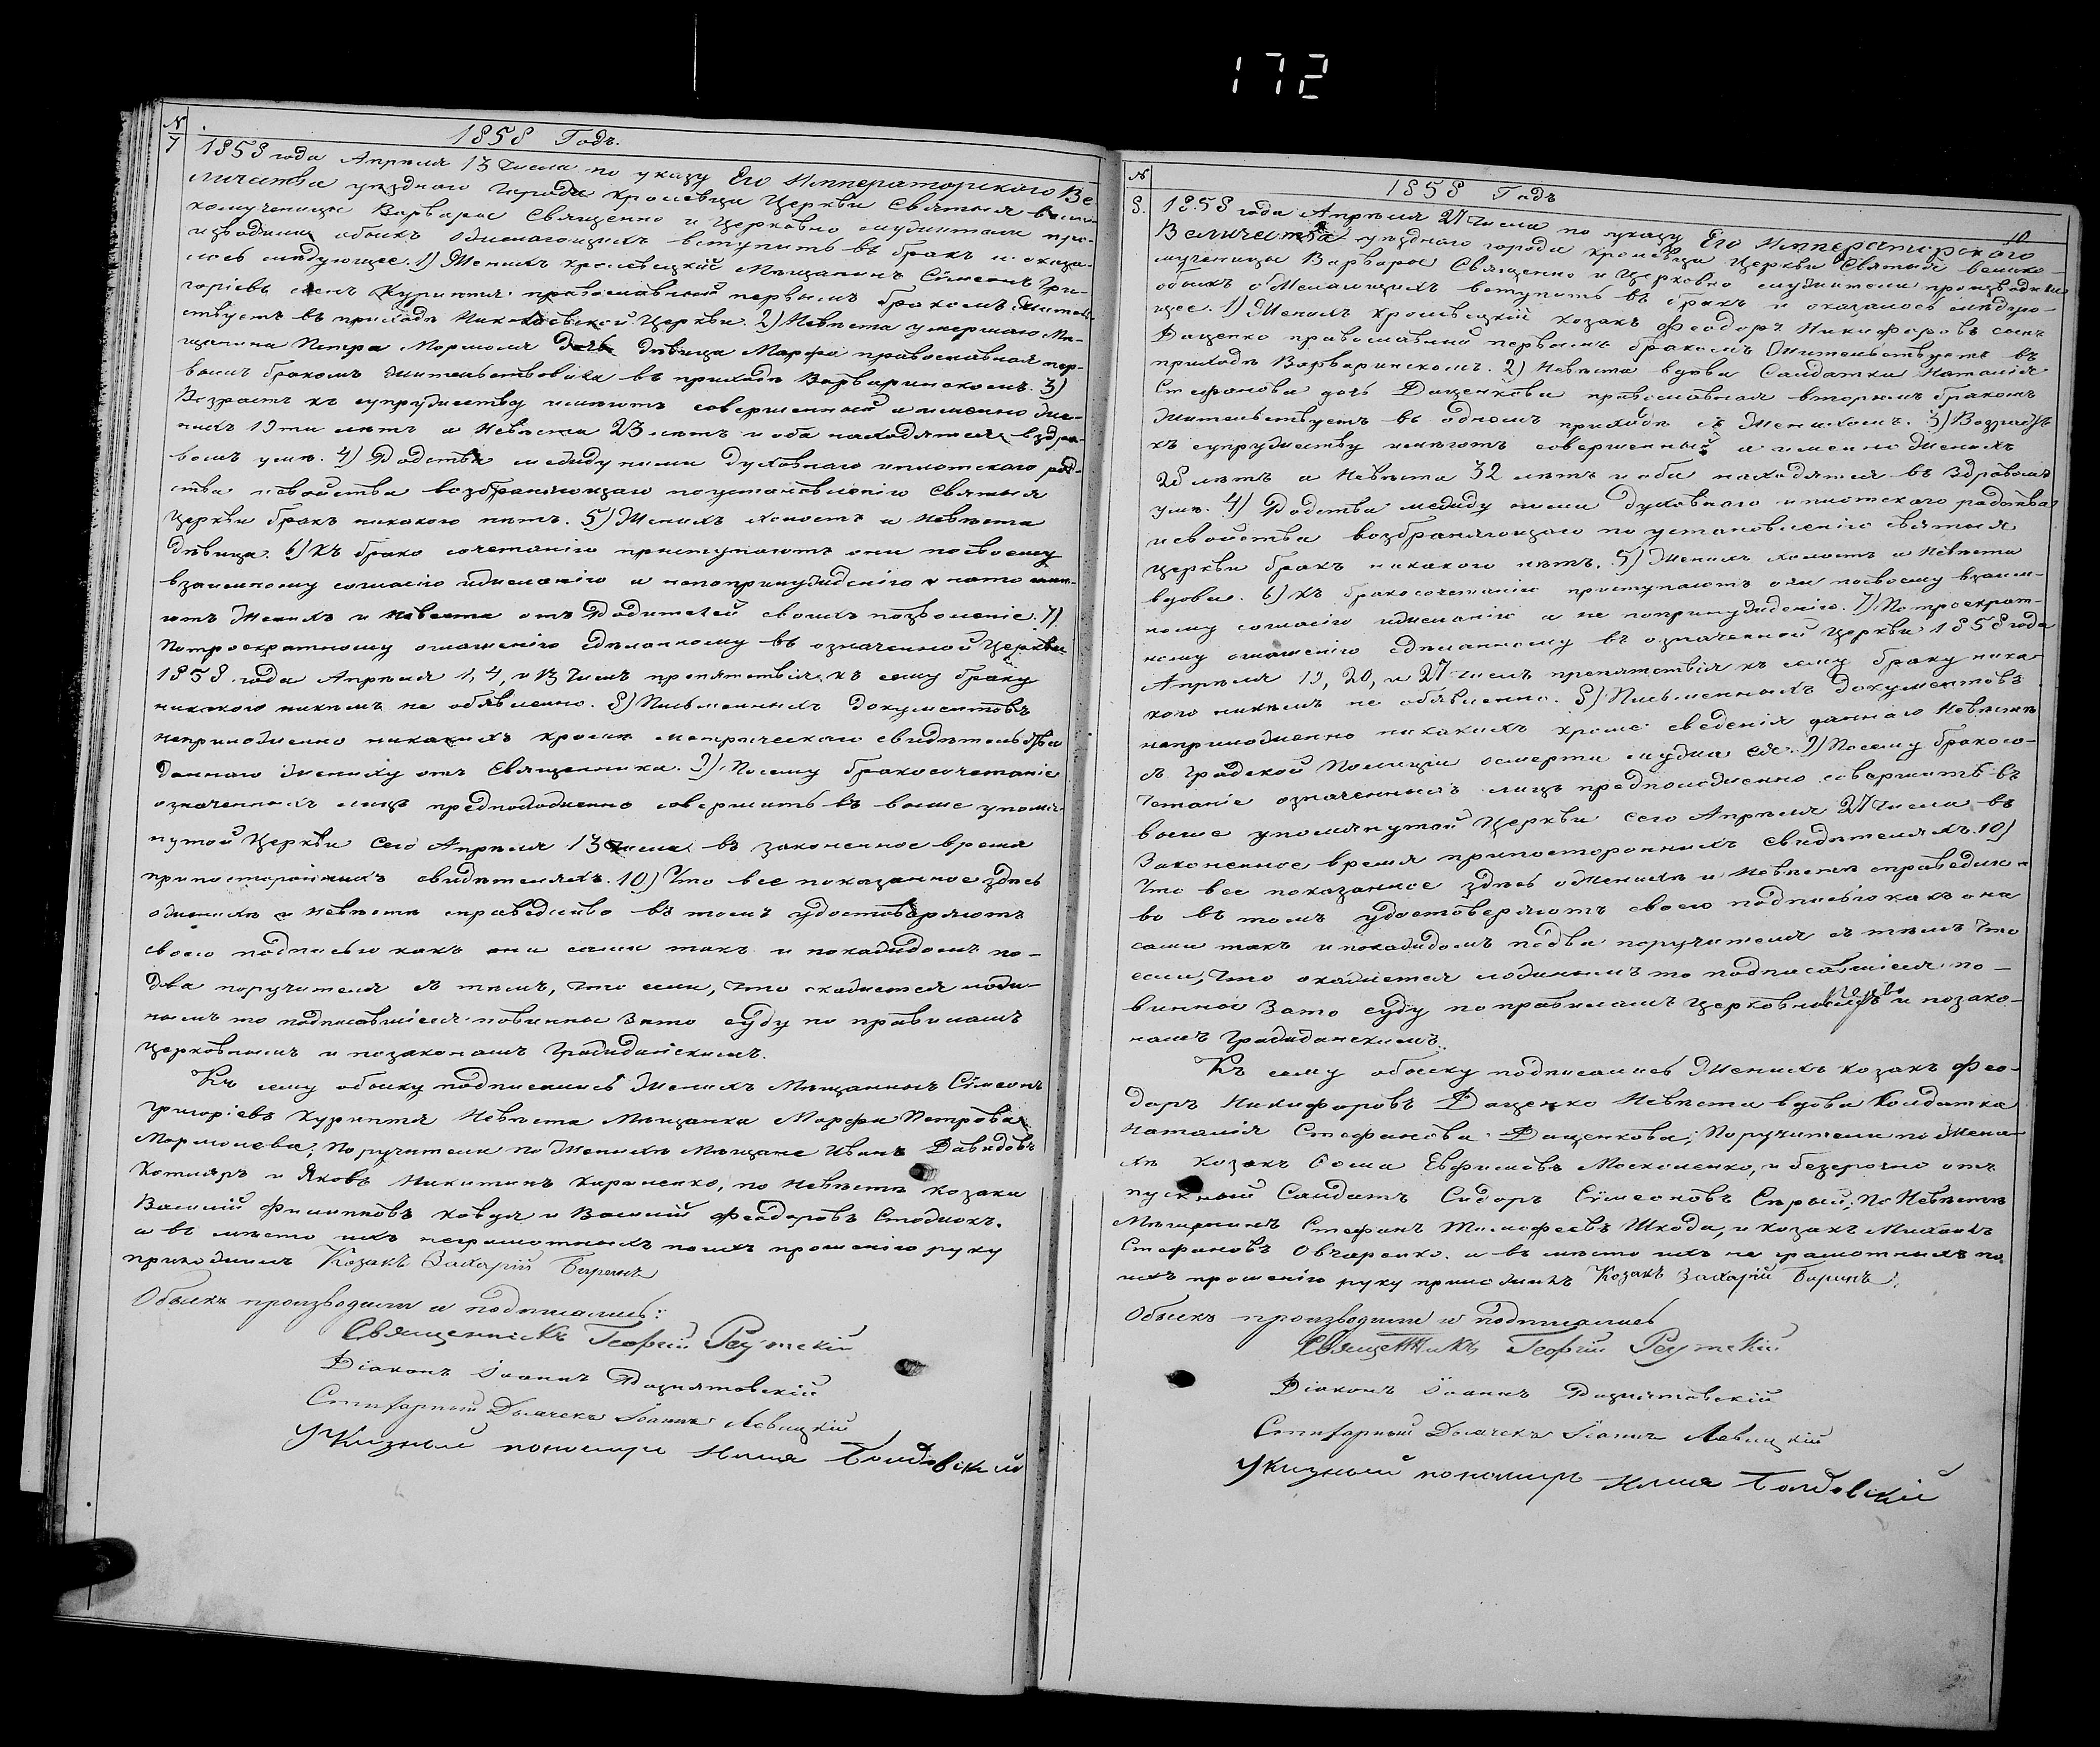 172
N
1858 Годъ.
7
1858 года Апрѣля 13 числа по указу Его Императорскаго Ве-
личества уѣзднаго города Кролевца Церкви Святыя вели-
комученицы Варвары Священно и Церковно служители про-
изводили обыскъ о желающихъ вступить въ бракъ и оказа-
лось слѣдующее. 1) Женихъ кролевецкій Мѣщанинъ Сѵмеонъ Гри-
горіевъ сынъ православный первымъ бракомъ Житель-
ствуетъ въ приходѣ Николаевской Церкви. 2) Невѣста умершаго Мѣ-
щанина Петра дѣвица Марфа православная пер-
вымъ бракомъ жительствовала въ приходѣ Варваринскомъ. 3)
Возрастъ къ супружеству имѣютъ совершенный а именно Же-
нихъ 19ти лѣтъ а Невѣста 23 лѣтъ и оба находятся въ здра-
вомъ умѣ. 4) Родства между ними духовнаго и плотскаго род-
ства и свойства возбраняющаго по установленію Святыя
Церкви бракъ никакого нѣтъ. 5) Женихъ холостъ и Невѣста
дѣвица. 6) Къ брако сочетанію приступаютъ они по своему
взаимному согласію и желанію а не по принужденію и на то имѣ-
ютъ Женихъ и Невѣста отъ Родителей своихъ позволеніе. 7)
По троекратному оглашенію сдѣланному въ означенной Церкви
1858 года Апрѣля 1, 4, и 13 числъ препятствія къ сему браку
никакого никѣмъ не объявленно. 8) Письменныхъ документовъ
не приложенно никакихъ кромѣ метрическаго свидѣтельства
даннаго Жениху отъ Священника. 9) По сему бракосочетаніе
означенныхъ лицъ предположенно совершить въ выше упомя-
нутой Церкви сего Апрѣля 13 числа въ законенное время
при постороннихъ свидѣтеляхъ. 10) Что все показанное здѣсь
о женихѣ и Невѣстѣ справедливо въ томъ удостовѣряютъ
своею подписью какъ они сами такъ и по каждомъ по-
два поручителя съ тѣмъ, что если, что окажется ложи-
нымъ то подписавшіеся повинны за то суду по правиламъ
церковнымъ и по законамъ Гражданскимъ.
Къ сему обыску подписались Женихъ Мѣщанинъ Сѵмеонъ
Григоріевъ Невѣста Мѣщанка Марфа Петрова
Поручители по Женихѣ Мѣщане Иванъ Давидовъ
Котляръ и Яковъ Никитинъ по Невѣстѣ козаки
Василій Филиповъ и Василій Феодоровъ
а въ мѣсто ихъ неграмотныхъ по ихъ прошенію руку
приложилъ Козакъ Захарій Биринъ
Обыскъ производили и подписались:
Священникъ Георгій Реутскій
Діаконъ Іоаннъ
Дьячекъ Іоаннъ Левицкій
Указный пономарь Илія
N
1858 Годъ
10
8.
1858 года Апрѣля 27 числа по указу Его Императорскаго
Величества уѣзднаго города Кролевца Церкви Святыя велико-
мученицы Варвары Священно и Церковно служители производили
обыскъ о желающихъ вступить въ бракъ и оказалось слѣдую-
щее. 1) Женихъ кролевецкій козакъ Феодоръ Никифоровъ сынъ
Даценко православный первымъ бракомъ Жительствуетъ въ
приходѣ Варваринскомъ. 2) Невѣста вдова Салдатка Наталія
Стефанова дочь Даценкова православная вторымъ бракомъ
Жительствуетъ въ одномъ приходѣ съ Женихомъ. 3) Возрастъ
къ супружеству имѣютъ совершенный а именно Женихъ
28 лѣтъ а Невѣста 32 лѣтъ и оба находятся въ здравомъ
умѣ. 4) Родства между ними духовнаго и плотскаго родства
и свойства возбраняющаго по установленію святыя
Церкви бракъ никакого нѣтъ. 5) Женихъ холостъ и Невѣста
вдова. 6) Къ бракосочетанію приступаютъ они по своему взаим-
ному согласію и желанію а не по принужденію. 7) По троекрат-
ному оглашенію сдѣланному въ означенной Церкви 1858 года
Апрѣля 19, 20, и 27 числъ препятствія къ сему браку ника-
кого никѣмъ не объявленно. 8) Письменныхъ документовъ
не приложенно никакихъ кромѣ сведенія даннаго Невѣстѣ
съ Градской Полиціи о смерти мужа ея. 9) По сему бракосо-
четаніе означенныхъ лицъ предположенно совершить въ
выше упомянутой Церкви сего Апрѣля 27 числа въ
законенное время при постороннихъ свидѣтеляхъ. 10)
Что все показанное здѣсь о Женихѣ и Невѣстѣ справедли-
во въ томъ удостовѣряютъ своею подписью какъ они
сами такъ и по каждомъ по два поручителя съ тѣмъ что
если, что окажется ложнымъ то подписавшіеся по-
винны за то суду по правиламъ Церковнымъ и по зако-
намъ Гражданскимъ.
Къ сему обыску подписались Женихъ козакъ Фео-
доръ Никифоровъ Даценко Невѣста вдова Солдатка
Наталія Стефанова Даценкова; Поручители по Жени-
хѣ Козакъ Фома Евфимовъ Москаленко, и безсрочно от-
пускный Салдатъ Сидоръ Сѵмеоновъ Сѣрый; По Невѣстѣ
Мѣщанинъ Стефанъ Тимофеевъ Шкода, и козакъ Михаилъ
Стефановъ Овчаренко. а въ мѣсто ихъ не грамотныхъ по
ихъ прошенію руку приложилъ Козакъ Захарій Биринъ.
Обыскъ производили и подписались
Священникъ Георгій Реутскій
Діаконъ Іоаннъ
Дьячекъ Іоаннъ Левицкій
Указный пономарь Илія